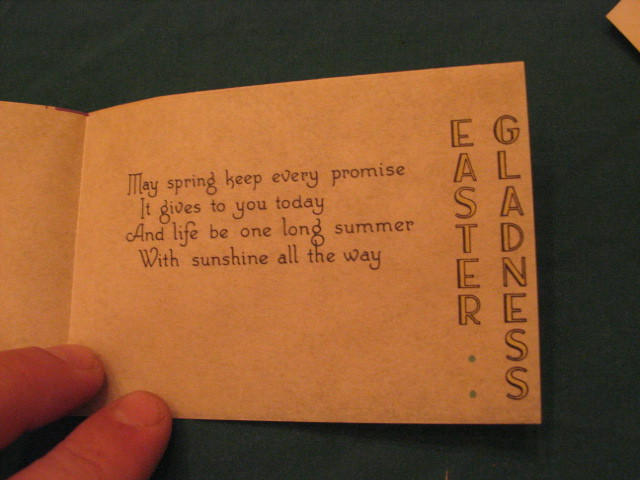 May spring keep every promise
It gives to you today
And life be one long summer
With sunshine all the way
EASTER
GLADNESS